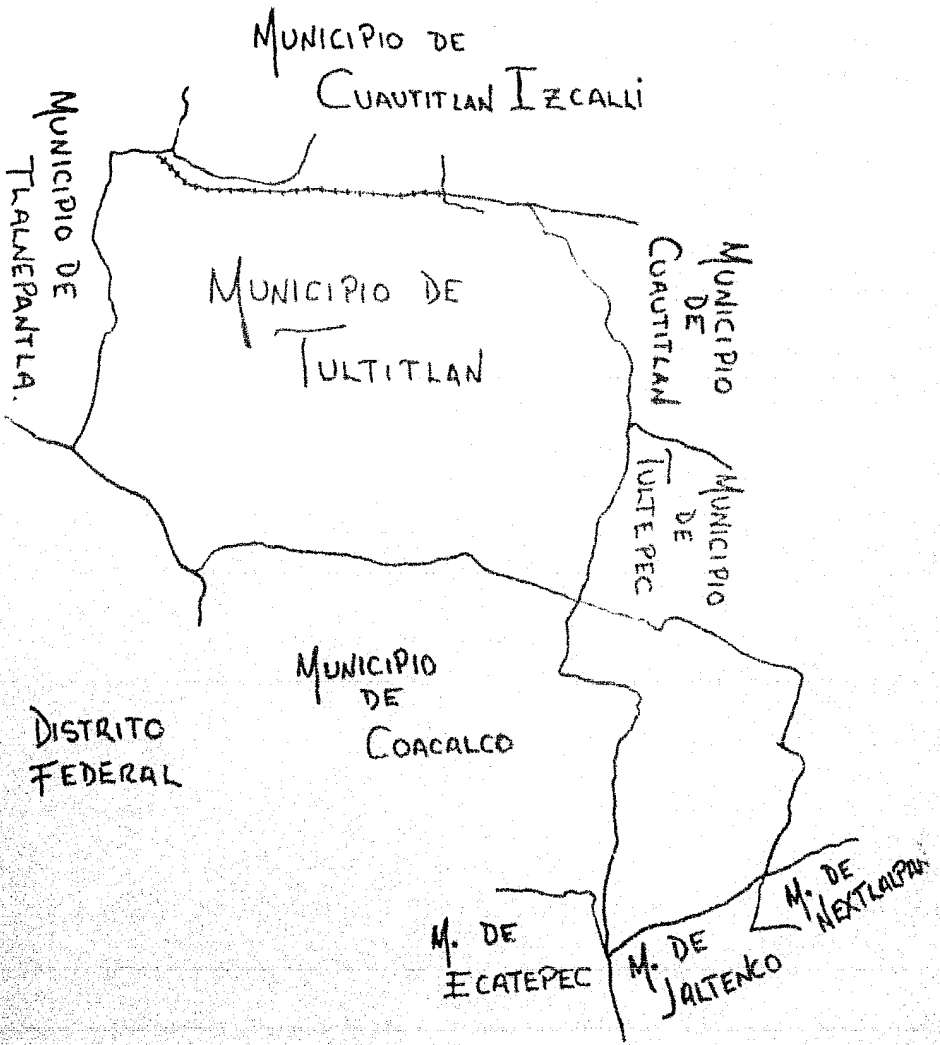 MUNICIPIO DE
CUAUTITLAN IZCALLI
MUNICIPIO DE
TLALNEPANTLA.
MUNICIPIO DE
TULTITLAN
MUNICIPIO
DE
CUAUTITLAN
MUNICIPIO
DE
TULTEPEC
MUNICIPIO
DE
COACALCO
DISTRITO
FEDERAL
M. DE
ECATEPEC
M. DE
JALTENCO
M. DE
NEXTLALPAN